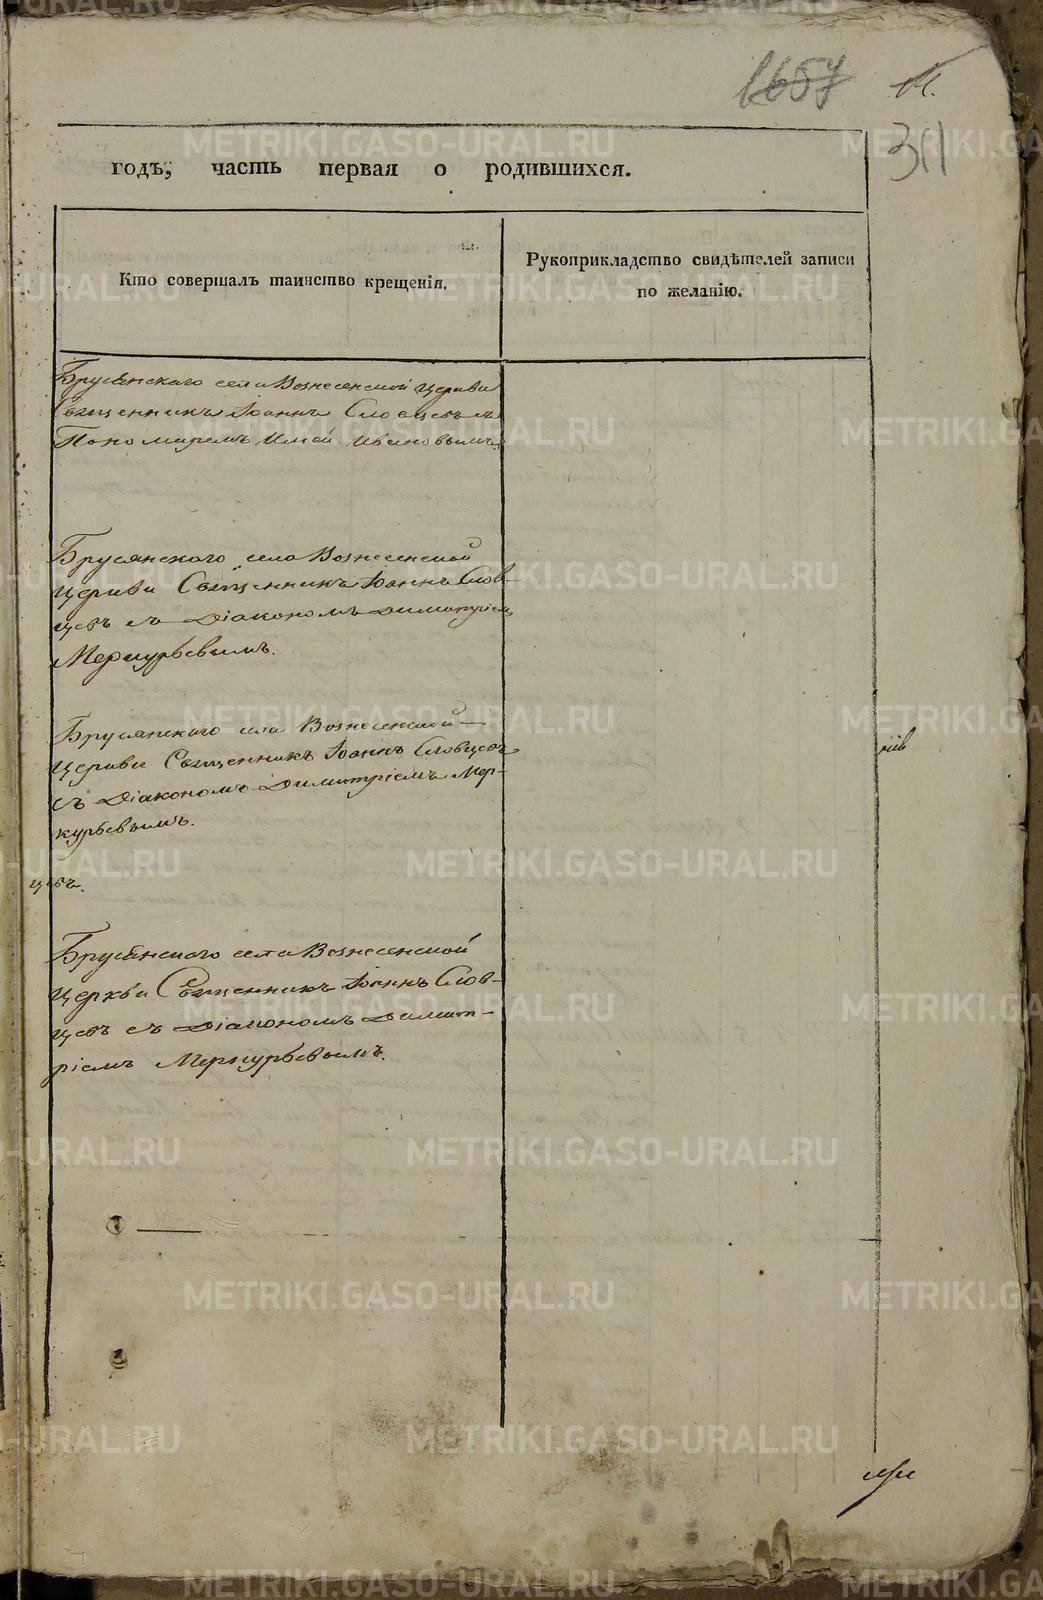 1657
311
годъ, часть первая о родившихся.
Кто совершалъ таинство крещенія.
Рукоприкладство свидѣтелей записи
по желанію.
Брусянскаго села Вознесенской Церкви
Священникъ Іоаннъ Словцевъ съ
Пономаремъ Ивановымъ.
Брусянскаго села Вознесенской
Церкви Священникъ Іоаннъ Слов-
цевъ съ Діакономъ Димитріемъ
Меркурьевымъ.
Брусянскаго села Вознесенской
Церкви Священникъ Іоаннъ Словцевъ
съ Діакономъ Димитріемъ Мер-
курьевымъ.
цевъ.
Брусянскаго села Вознесенской
Церкви Священникъ Іоаннъ Слов-
цевъ съ Діакономъ Димит-
ріемъ Меркурьевымъ.
METRIKI.GASO-URAL.RU